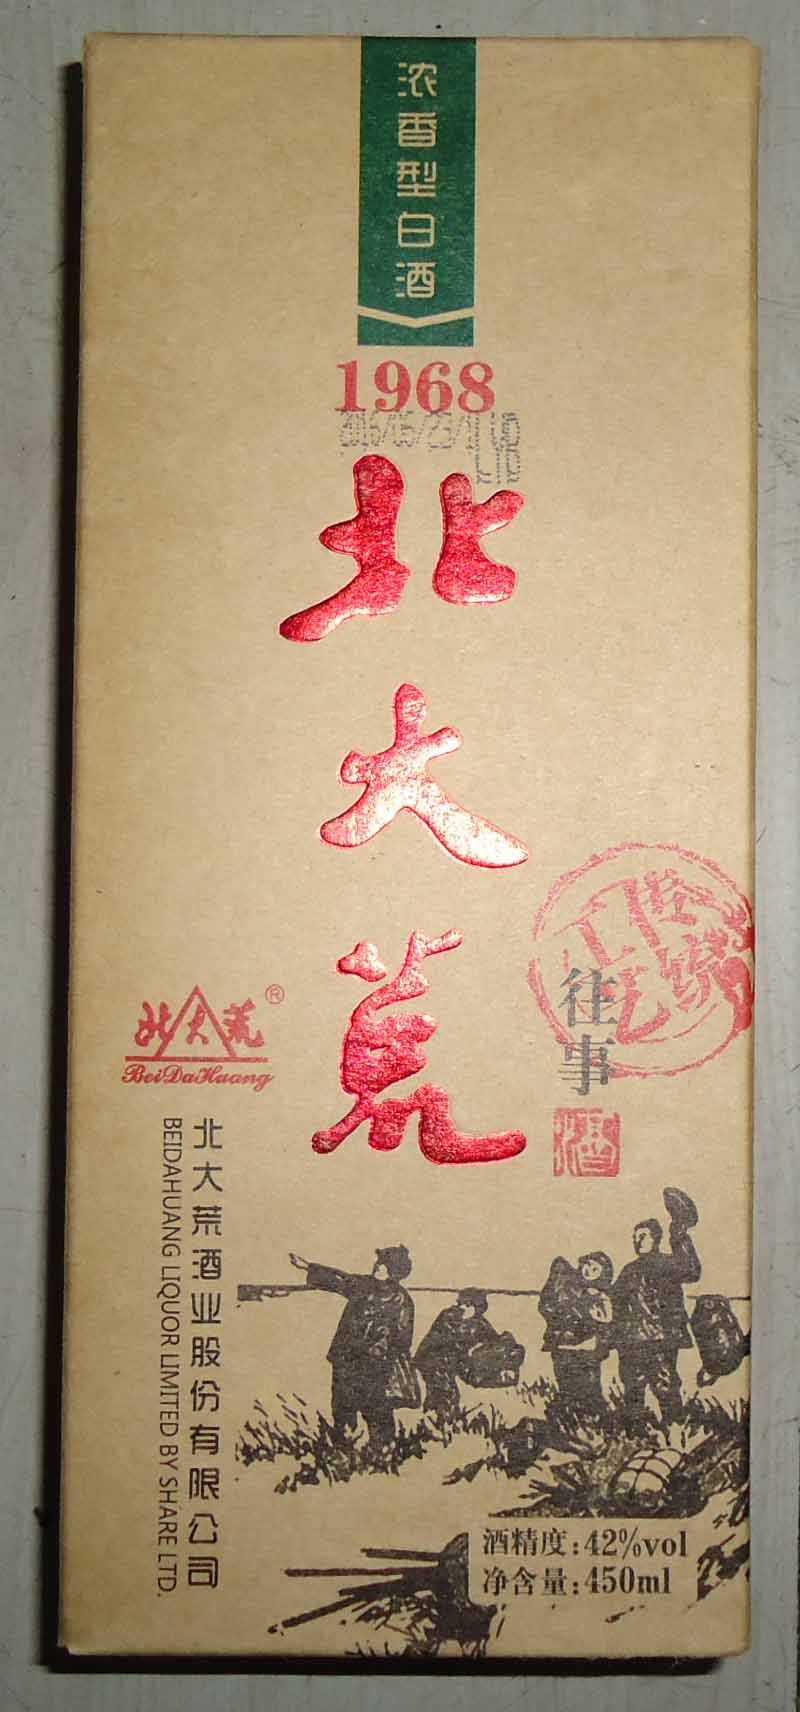 浓香型白酒
1968
2016/05/23/1
北大荒
往事
北大荒®
BeiDaHuang
北大荒酒业股份有限公司
BEIDAHUANG LIQUOR LIMITED BY SHARE LTD.
酒精度:42%vol
净含量:450ml